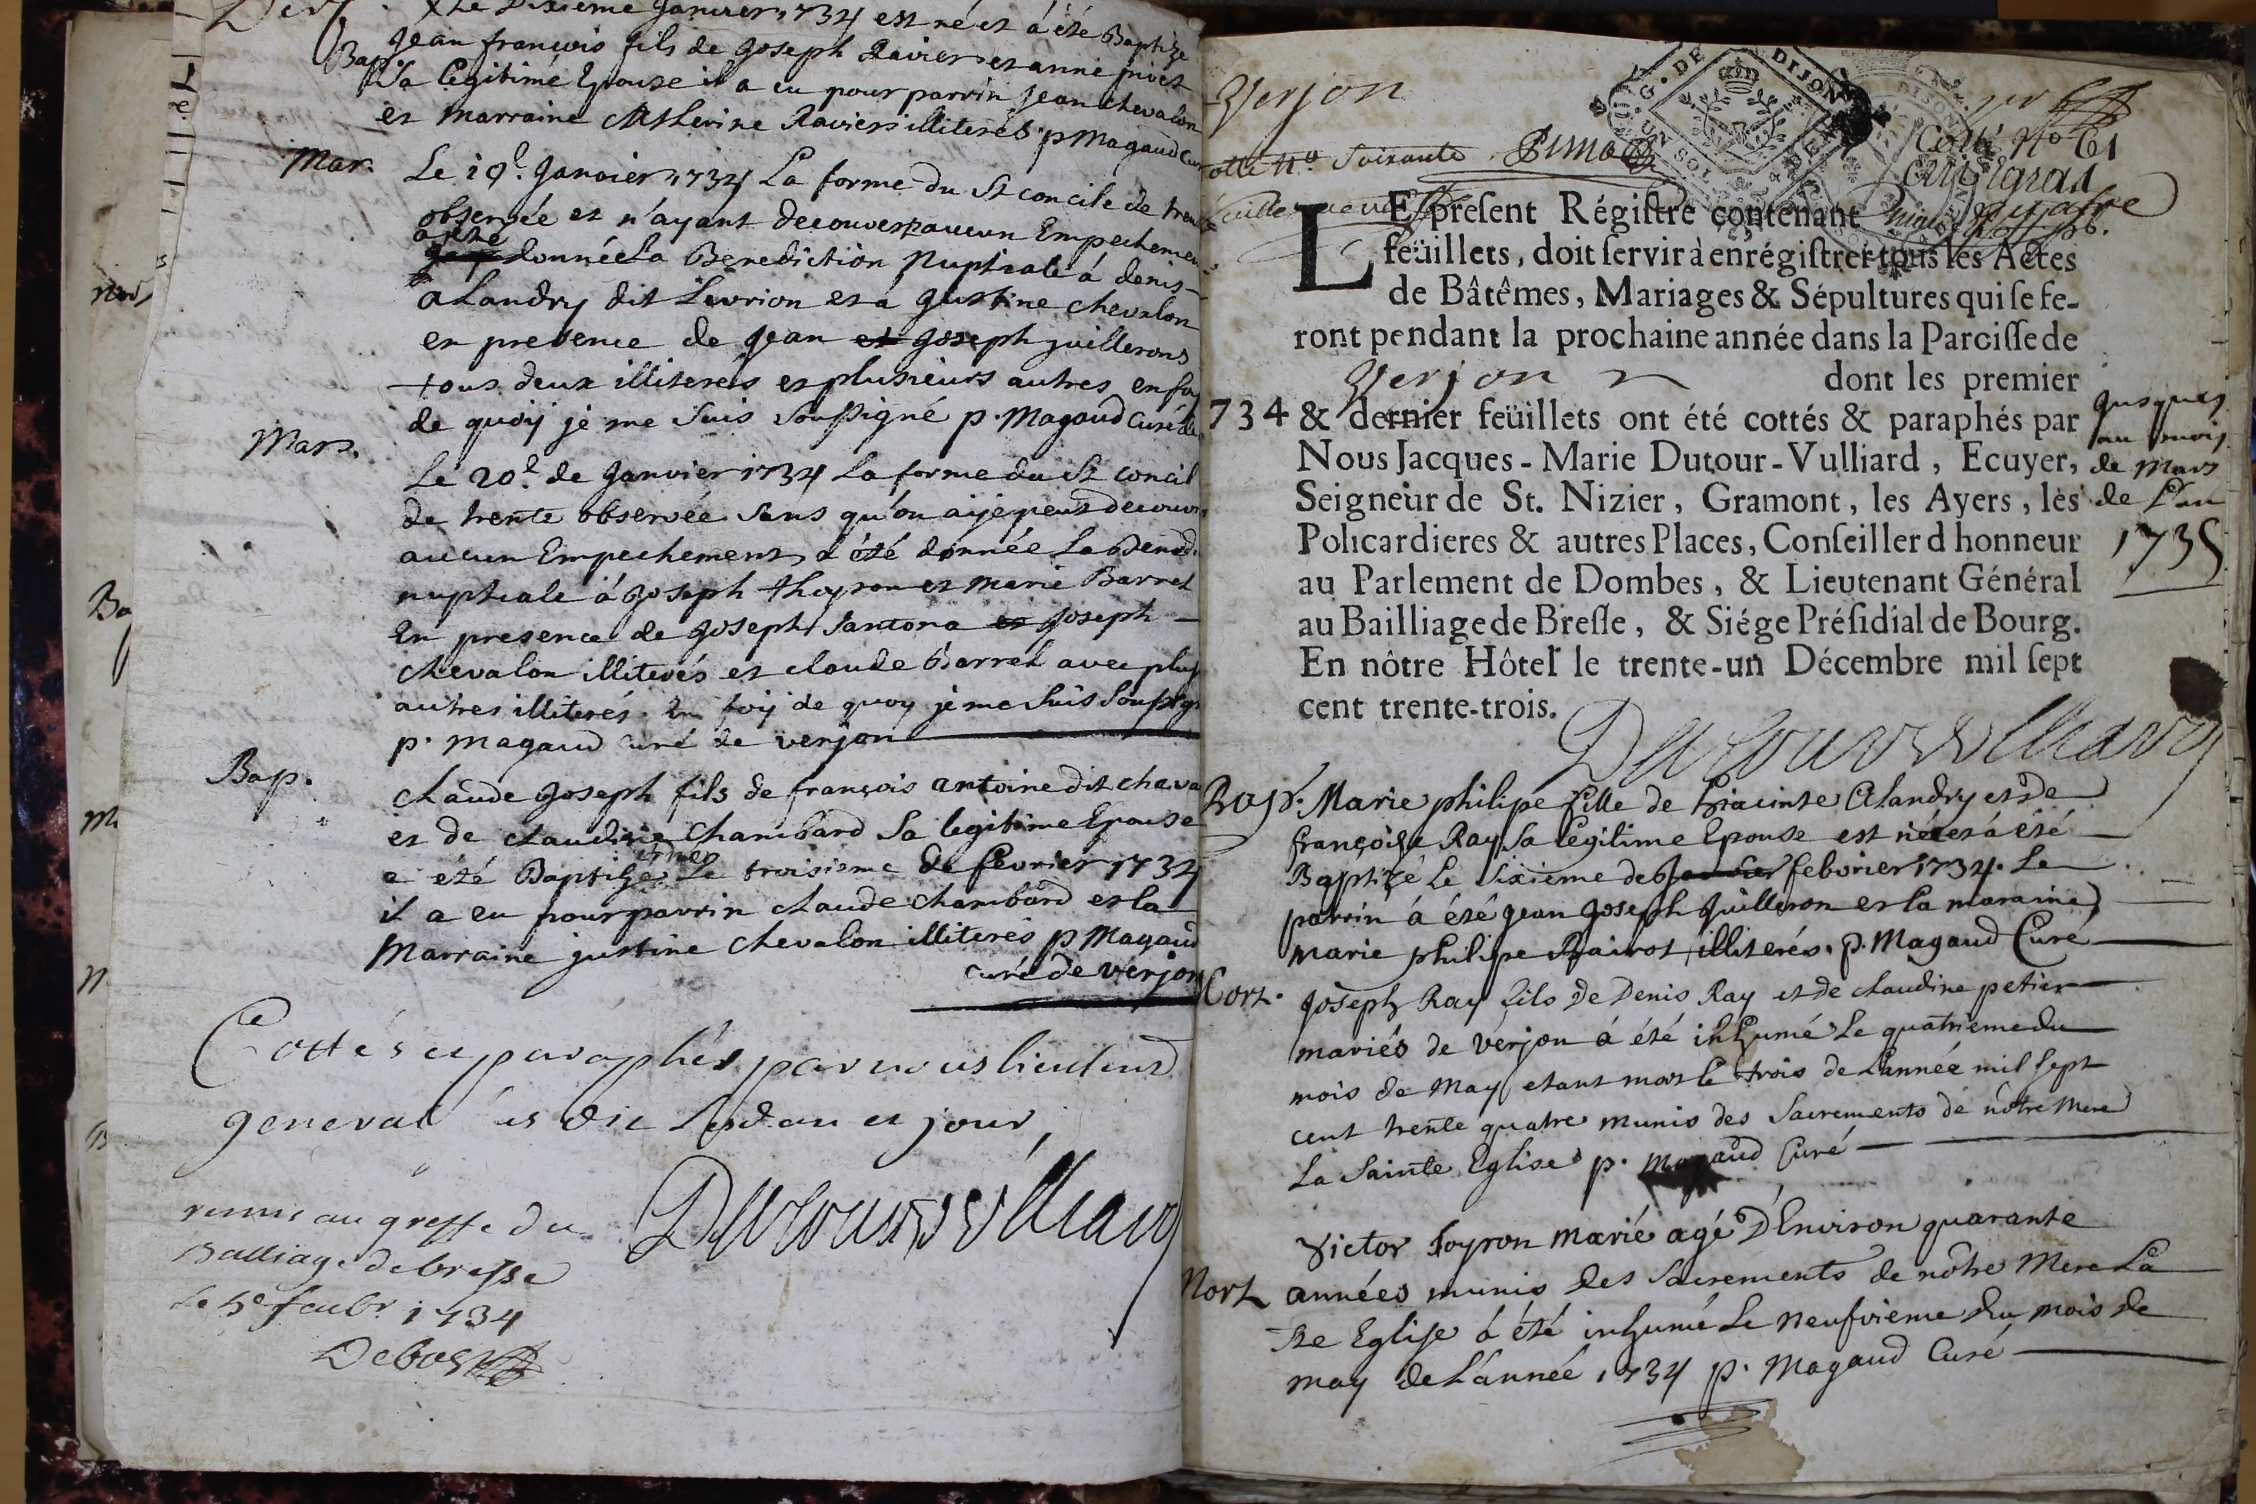 Le Dixieme Janvier 1734 est né et á été Baptize
Bap. Jean françois fils de Joseph Ravier et anne
Sa legitime Epouse il a eu pour parrin Jean chevalon
et marraine Catherine Ravier illiterés p Magaud Curé
Mar. Le 19e Janvier 1734 La forme du St concile de tren
observée et n'ayant decouvert aucun Empechemen
a été donnée La Benediction Nuptiale á denis
alandry dit Livrion et a Justine chevalon
en presence de Jean et Joseph juillerons
tous deux illiterés et plusieurs autres en foy
de quoÿ je me suis soussigné p. Magaud Curé
Mar. Le 20e de Janvier 1734 La forme du St concil
de trente observée sans qu'on aije peut decouvr
aucun Empechement a été donnée La Bened.
nuptiale á Joseph thoyron et Marie Barret
En presence de Joseph Santona et Joseph
chevalon illiterés et claude Barret avec plus
autres illiterés. En foÿ de quoy je me suis soussig
p. Magaud curé de verjon
Bap. claude Joseph fils de françois antoine dit
et de claudine Chambard Sa legitime Epouse
a été Baptizé Le troisieme de fevrier 1734
il a eu pour parrin claude chambard et la
Marraine justine chevalon illiterés p Magaud
curé de verjon
Cottés et paraphés par nous lieutent
general
remis au greffe du
Balliage de bresse
le 5e feubr 1734
Verjon
cotté No 61
Cotte No. soixante
quatre
LE present Régistre contenant
feüillets, doit servir à enrégistrer tous les Actes
de Bâtêmes, Mariages & Sépultures qui se fe-
ront pendant la prochaine année dans la Parcisse de
Verjon dont les premier
734 & dernier feüillets ont été cottés & paraphés par
Nous Jacques-Marie Dutour-Vulliard, Ecuyer,
Seigneur de St. Nizier, Gramont, les Ayers, les
Policardieres & autres Places, Conseiller d honneur
au Parlement de Dombes, & Lieutenant Général
au Bailliage de Bresse, & Siége Présidial de Bourg.
En nôtre Hôtel le trente-un Décembre mil sept
cent trente-trois.
Jusques
au mois
de Mars
de L'an
1735
Dutour Vulliard
Bapt. Marie philipe fille de hiacinte Alandry et de
françoise Ray Sa legitime Epouse est née et á été
Baptizé Le Sixieme de janvier febvrier 1734. Le
parrin á été Jean Joseph Juilleron et la maraine
marie philipe illiterés. p. Magaud Curé
Mort. Joseph Ray fils de Denis Ray et de claudine petier
mariés de verjon á été inhumé Le quatrieme du
mois de May etant mort le trois de L'année mil sept
cent trente quatre munis des Sacrements de nôtre Mere
La Sainte Eglise p. Magaud Curé
Victor Toyron marié agé D'Environ quarante
Mort années munis des Sacrements de nôtre Mere La
Ste Eglise á été inhumé Le neufvieme du mois de
may de L'année 1734 p. Magaud Curé